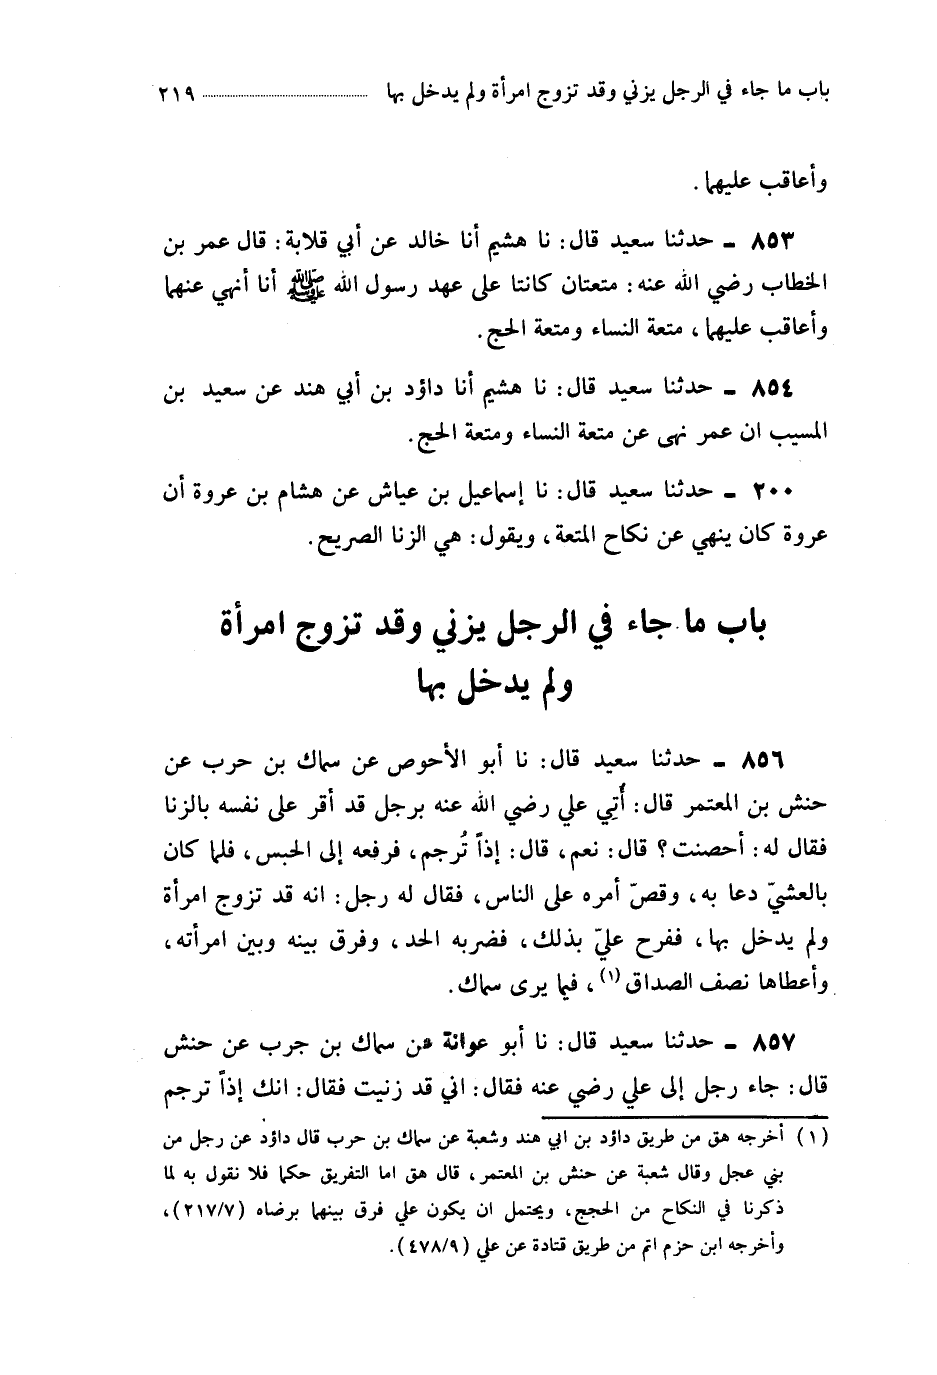 باب ما جاء في الرجل يزني وقد تزوج امرأة ولم يدخل بها ٢١٩
وأعاقب عليهما.
٨٥٣ ـ حدثنا سعيد قال: نا هشيم أنا خالد عن أبي قلابة: قال عمر بن
الخطاب رضي الله عنه: متعتان كانتا على عهد رسول الله ﷺ أنا أنهي عنهما
وأعاقب عليهما، متعة النساء ومتعة الحج.
٨٥٤ ـ حدثنا سعيد قال: نا هشيم أنا داؤد بن أبي هند عن سعيد بن
المسيب ان عمر نهى عن متعة النساء ومتعة الحج.
٢٠٠ ـ حدثنا سعيد قال: نا إسماعيل بن عياش عن هشام بن عروة أن
عروة كان ينهي عن نكاح المتعة، ويقول: هي الزنا الصريح.
باب ما جاء في الرجل يزني وقد تزوج امرأة
ولم يدخل بها
٨٥٦ ـ حدثنا سعيد قال: نا أبو الأحوص عن سماك بن حرب عن
حنش بن المعتمر قال: أُتي علي رضي الله عنه برجل قد أقر على نفسه بالزنا
فقال له: أحصنت؟ قال: نعم، قال: إذاً تُرجم، فرفعه إلى الحبس، فلما كان
بالعشيّ دعا به، وقصّ أمره على الناس، فقال له رجل: انه قد تزوج امرأة
ولم يدخل بها، ففرح عليّ بذلك، فضربه الحد، وفرق بينه وبين امرأته،
وأعطاها نصف الصداق(١)، فيما يرى سماك.
٨٥٧ ـ حدثنا سعيد قال: نا أبو عوانة عن سماك بن جرب عن حنش
قال: جاء رجل إلى علي رضي عنه فقال: اني قد زنيت فقال: انك إذاً ترجم
(١) أخرجه هق من طريق داؤد بن ابي هند وشعبة عن سماك بن حرب قال داؤد عن رجل من
بني عجل وقال شعبة عن حنش بن المعتمر، قال هق اما التفريق حكما فلا نقول به لما
ذكرنا في النكاح من الحجج، ويحتمل ان يكون علي فرق بينهما برضاه (٢١٧/٧)،
وأخرجه ابن حزم اتم من طريق قتادة عن علي (٤٧٨/٩).